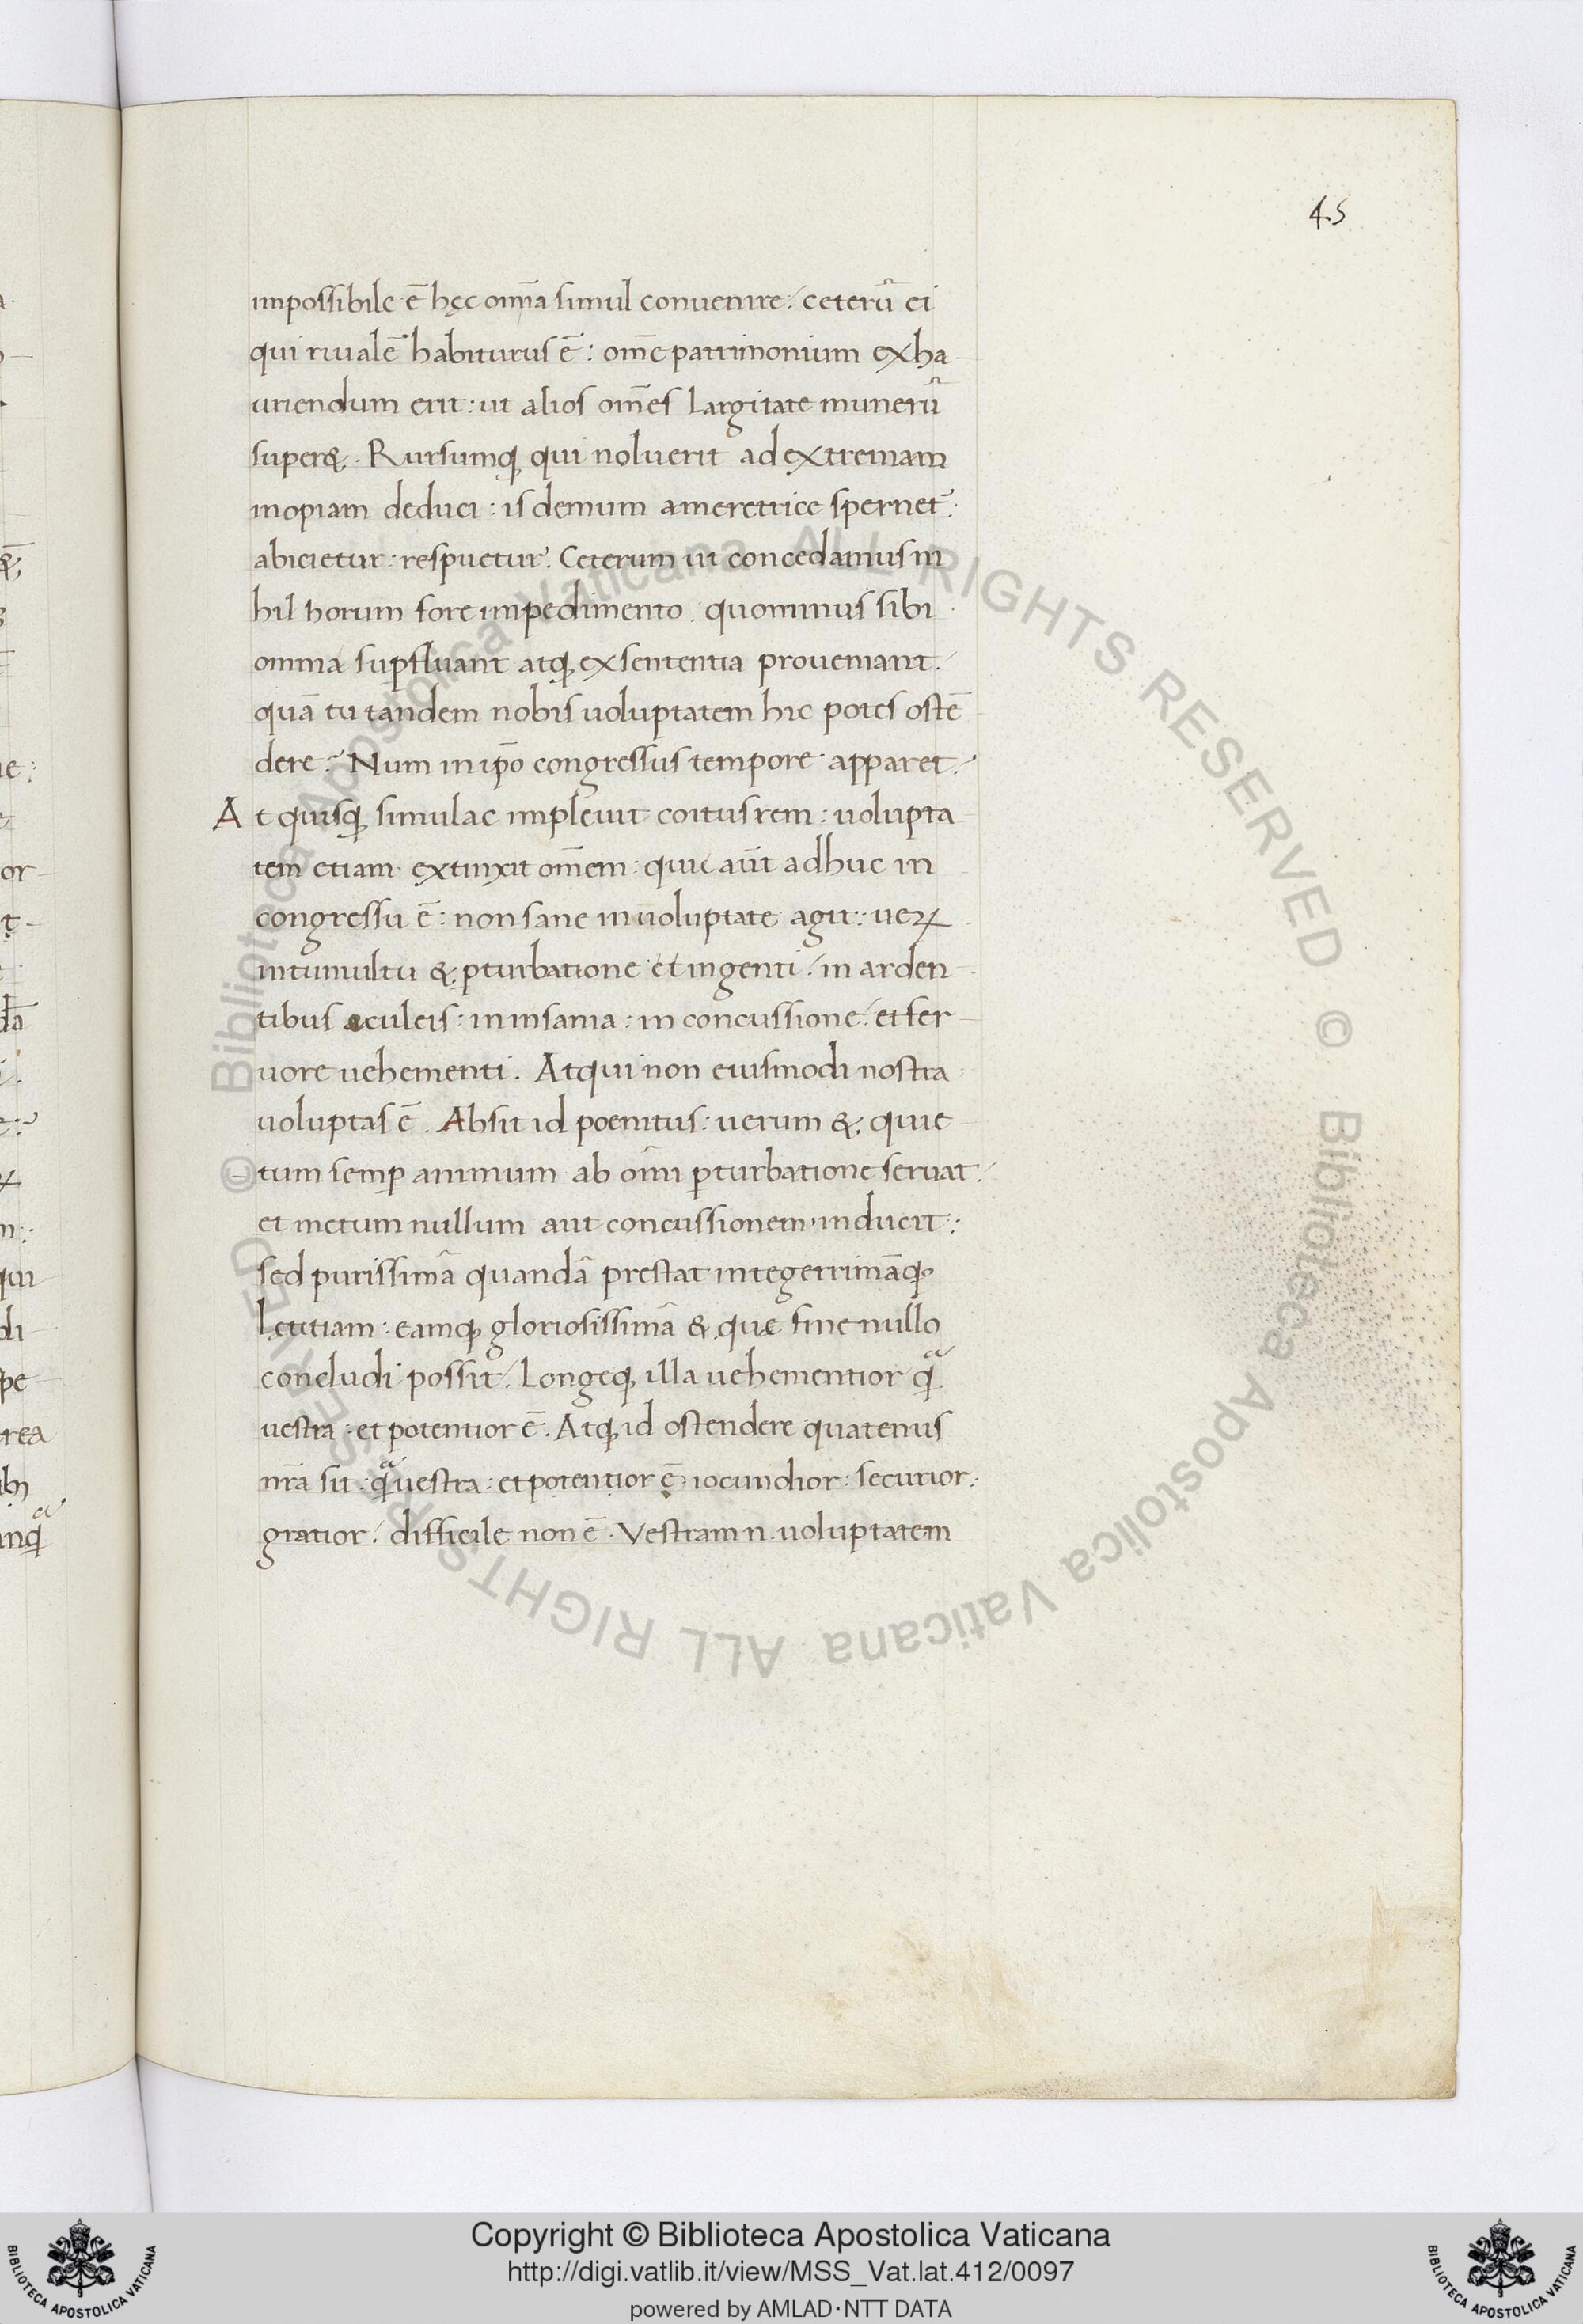 45
impossibile ē hęc om̄a simul conuenire / ceterū ei
qui riualē habiturus ē : om̄e patrimonium exha
uriendum erit : ut alios om̄es largitate munerū
super&. Rursumq; qui noluerit ad extremam
inopiam deduci : is demum a meretrice spernet᷑ :
abicietur : respuetur. Ceterum ut concedamus ni
hil horum fore impedimento. quominus sibi
omnia suꝑfluant atq; ex sententia proueniant. /
quā tu tandem nobis uoluptatem hic potes ostē
dere ? Num in ip̄o congressus tempore apparet. /
At quisq; simulac impleuit coitus rem : uolupta
tem etiam extinxit om̄em : qui aūt adhuc in
congressu ē : non sane in uoluptate agit : ueꝝ
in tumultu & ꝑturbatione et ingenti / in arden
tibus aculeis : in insania : in concussione / et fer
uore uehementi. Atqui non eiusmodi nostra
uoluptas ē. Absit id poenitus : uerum & quie
tum semꝑ animum ab om̄i ꝑturbatione seruat /
et metum nullum aut concussionem inducit :
sed purissimā quandā prestat integerrimāq;
lętitiam : eamq; gloriosissimā & que fine nullo
concludi possit / Longeq; illa uehementior qᷓ
uestra · et potentior ē. Atq; id ostendere quatenus
nr̄a sit : qᷓ uestra : et potentior ē iocundior : securior :
gratior / difficile non ē. Vestram n. uoluptatem
Copyright © Biblioteca Apostolica Vaticana
http://digi.vatlib.it/view/MSS_Vat.lat.412/0097
powered by AMLAD·NTT DATA
BIBLIOTECA APOSTOLICA VATICANA
BIBLIOTECA APOSTOLICA VATICANA
© Biblioteca Apostolica Vaticana ALL RIGHTS RESERVED © Biblioteca Apostolica Vaticana ALL RIGHTS RESERVED